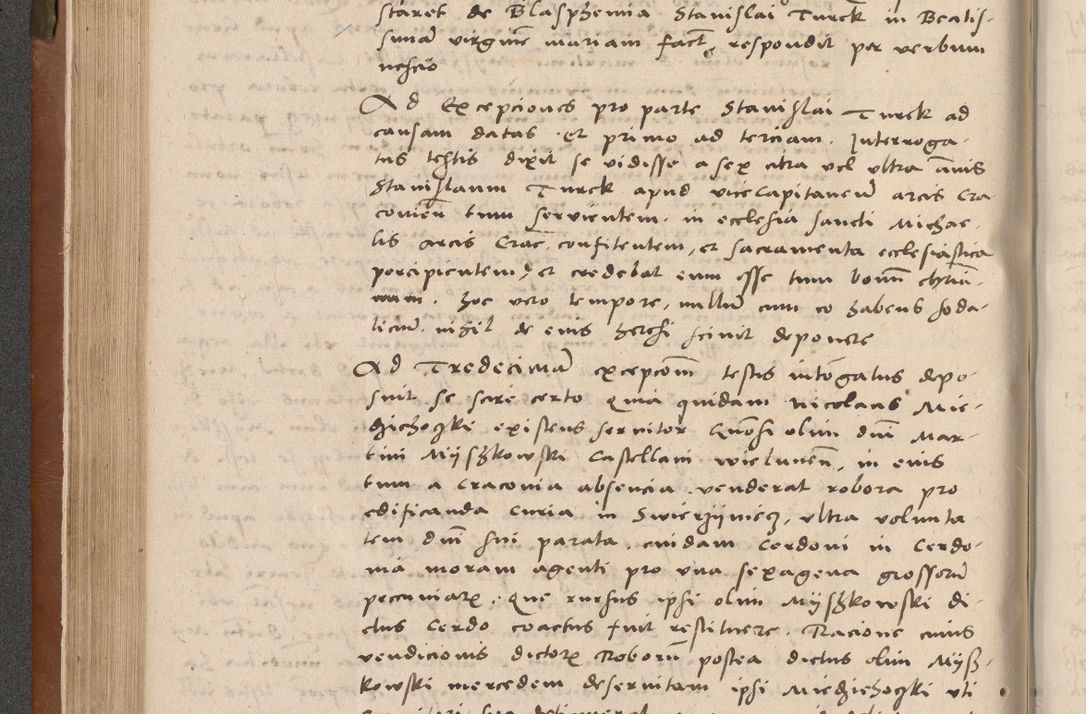 staret de Blasphemia Stanislai Turek in Beatis-
simā virginē mariam fact. respondit per verbum
nescio
Ad Excepciones pro parte Stanislai Turek ad
causam datas et primo ad terciam. Interroga-
tus testis dixit se vidisse a sex citra vel vltra ānis
Stanislaum Turek apud viceCapitaneū arcis Cra
covieñ tum servientem. in ecclesia sancti Michae-
lis arcis Crac. confitentem, et sacramenta ecclesiastica
percipientem, et credebat eum esse tum bonū chriā-
num. hoc vero tempore, nullū cum eo habens soda-
liciū. nihil de eius heresi scivit deponere
Ad Tredecimā excepcōm testis intōgatus depo-
suit se scire certo quia quidam Nicolaus Mie-
dzichoczki existens servitor quōsi olim dnī Mar-
tini Myszkowski Castellani wielunenñ, in eius
tum a Cracovia absencia venderat robora pro
edificanda Curia in Swierzinicz, vltra volunta-
tem dnī sui parata. cuidam Cerdoni in Cerdo-
nia moram agenti pro vna sexagena grossorū
pecuniarꝝ. Que rursus ipsi olim Myszkowski di-
ctus Cerdo coactus fuit restituere. Racione cuius
vendicionis dictorꝝ Roborū postea dictus olim Mysz-
kowski mercedem deservitam ipsi Miedzichoczki vti